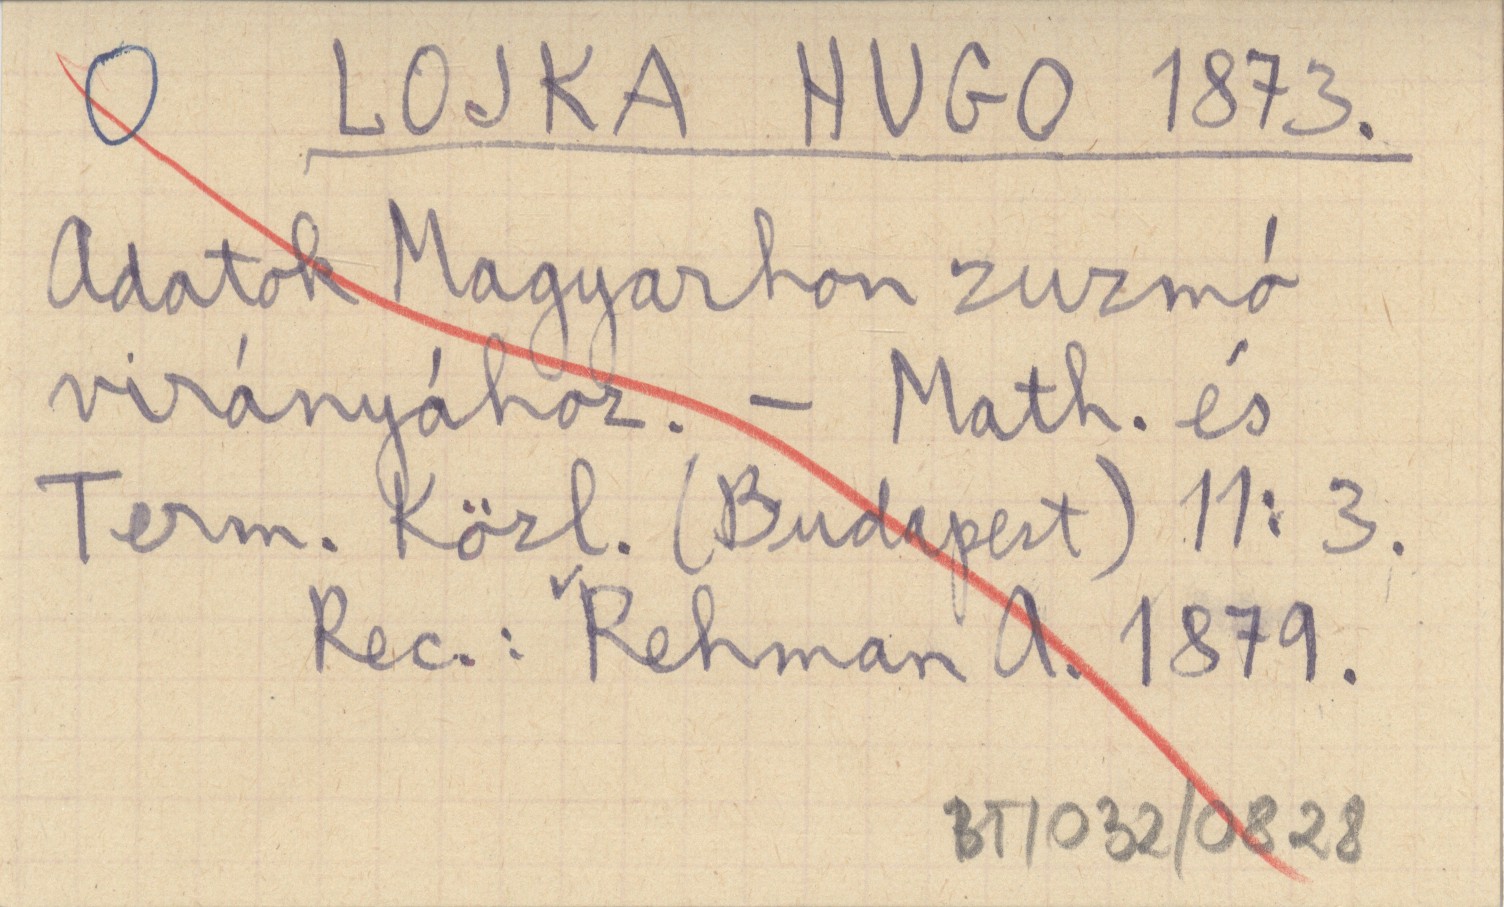 LOJKA HUGO 1873.
Adatok Magyarhon zuzmó
virányához. - Math. és
Term. Közl. (Budapest) 11: 3.
Rec.: Rehman A. 1879.
BT/032/0828